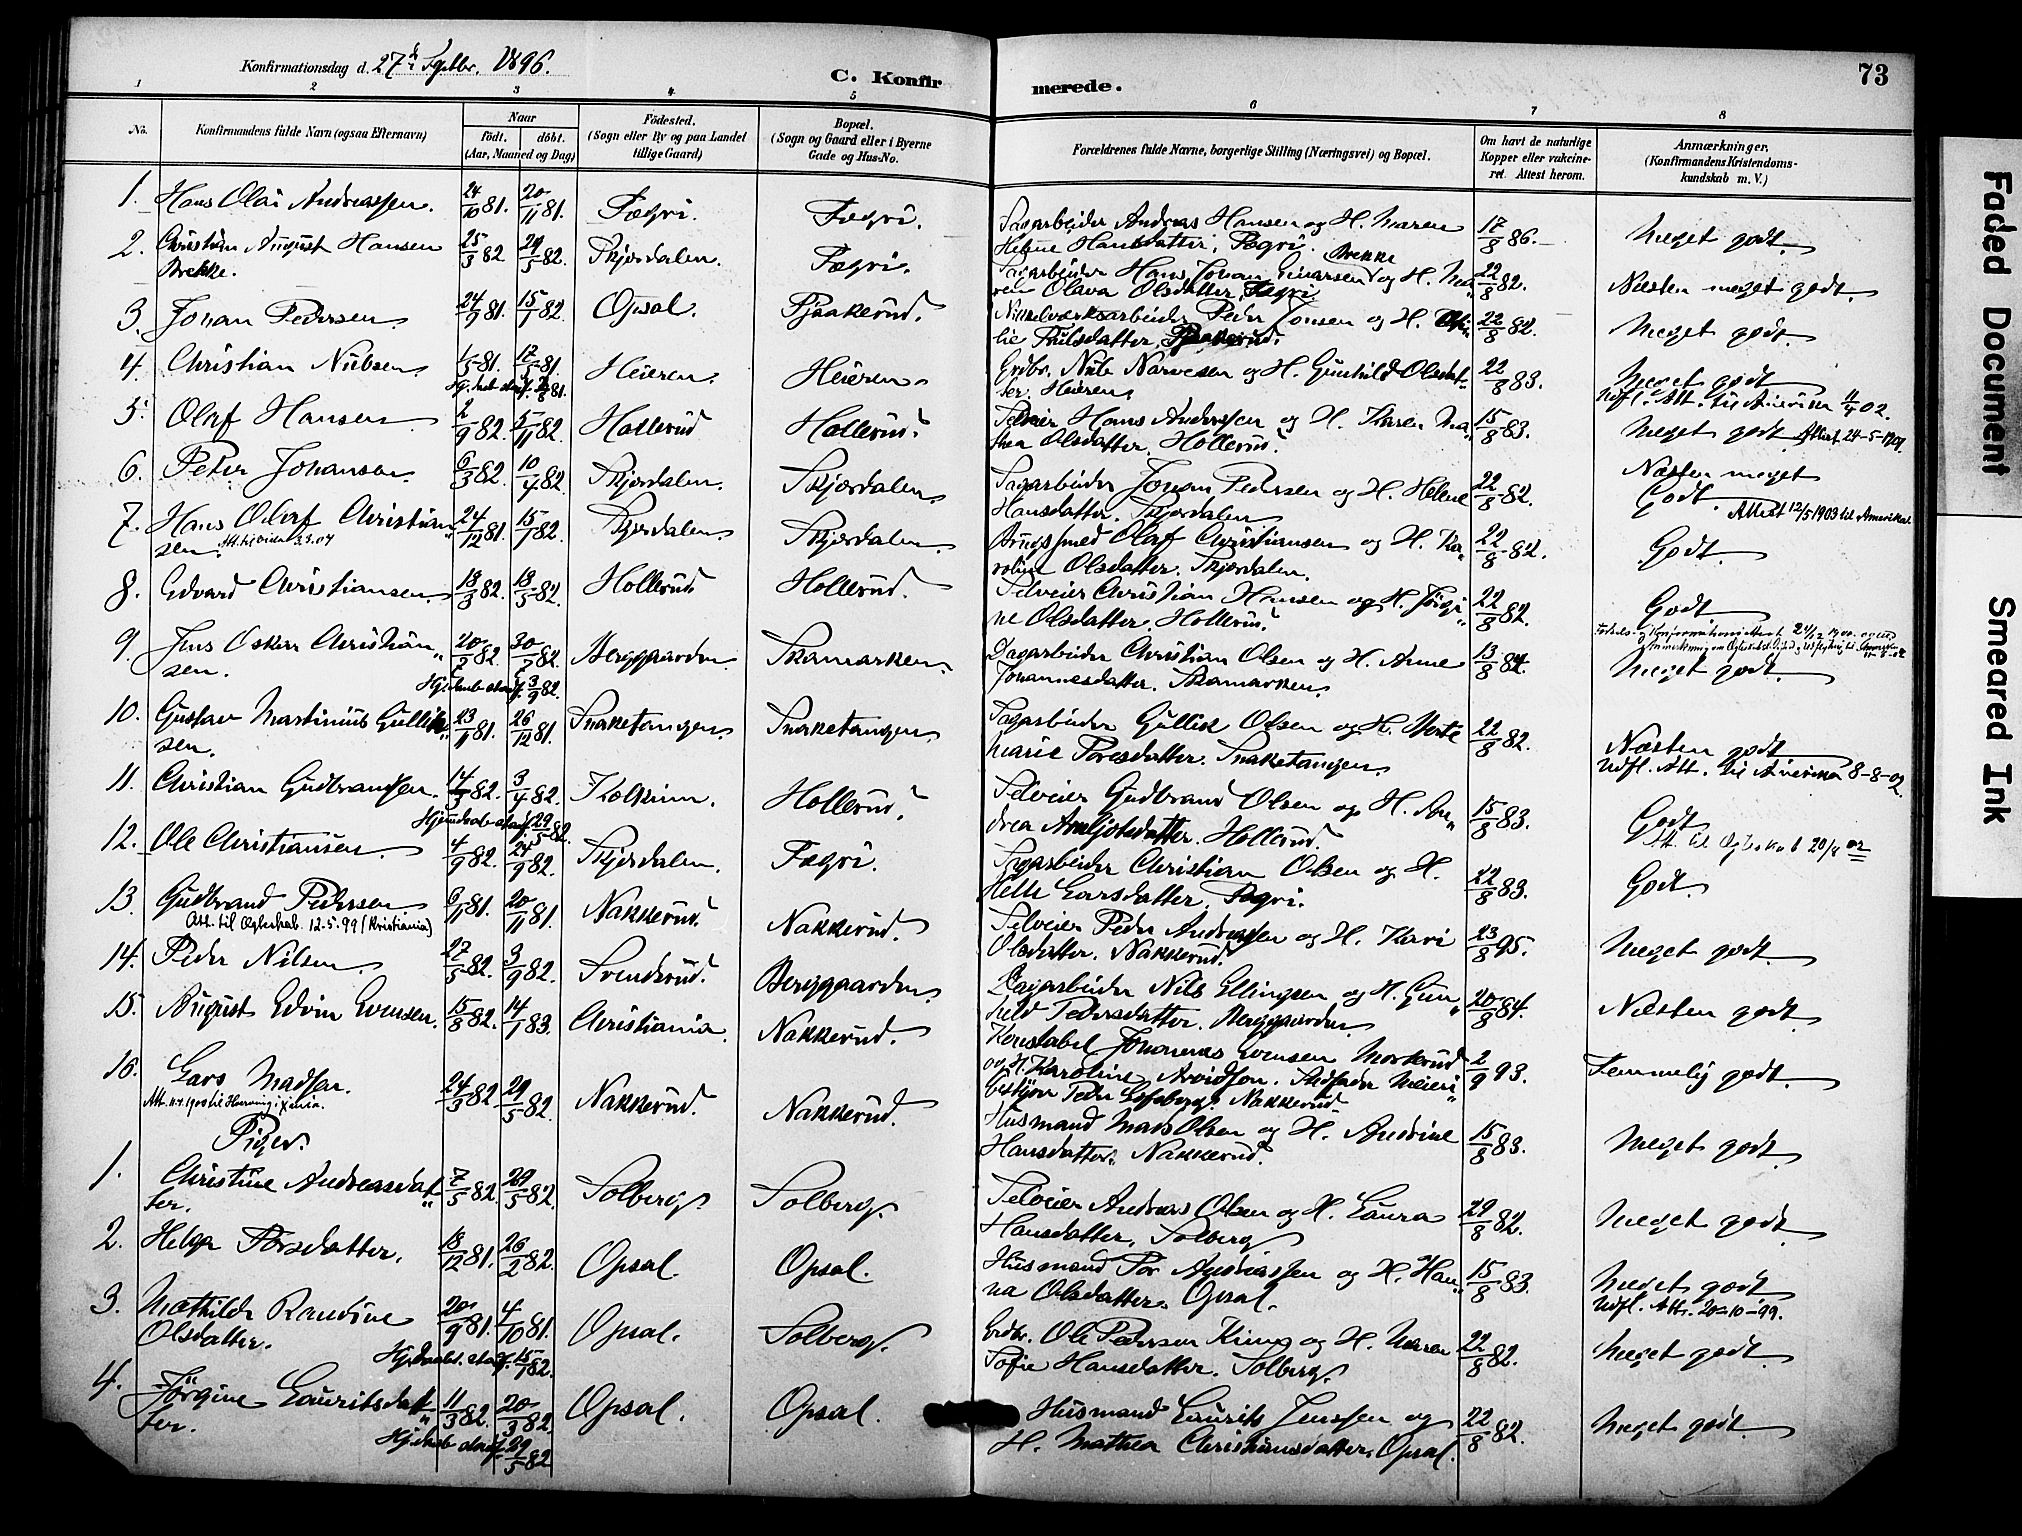 Konfirmationsdag d. 27de Septbr. 1896.
C. Konfirmerede.
73
1 2 3 4 5 6 7 8
No.
Konfirmandens fulde Navn (ogsaa Efternavn)
Naar
født. døbt.
(Aar, Maaned og Dag)
Fødested.
(Sogn eller By og paa Landet
tillige Gaard)
Bopæl.
(Sogn og Gaard eller i Byerne
Gade og Hus-No.
Forældrenes fulde Navne, borgerlige Stilling (Næringsvei) og Bopæl.
Om havt de naturlige
Kopper eller vakcine-
ret. Attest herom.
Anmærkninger.
(Konfirmandens Kristendoms-
kundskab m. V.)
1. Hans Olai Andreassen. 24/10 81. 20/11 81. Fægri. Fægri. Sagarbeider Andreas Hansen og H. Maren 17/8 86. Meget godt.
Helene Hansdatter. Fægri.
2. Christian August Hansen 25/3 82 29/5 82. Skjørdalen. Fægri. Sagarbeider Hans Johan Einarsen Brekke og H. Ma- 22/8 82. Næsten meget godt.
Brekke. ren Olava Olsdatter, Fægri
3. Johan Pedersen. 24/9 81. 15/1 82. Opsal. Pjaakerud. Nikkelværksarbeider Peder Jonsen og H. 22/8 82. Meget godt.
4. Christian Nielsen 1/5 81. 17/5 81. Heieren. Heieren. Grdbr. Niels Narvesen og H. Gunhild Olsdat- 22/8 83. Meget godt
Hj.døb stadf. 81 ter. Heieren Udfl. Att. til Amerika 11/4 02.
5. Olaf Hansen 2/9 82. 5/11 82. Hollerud Hollerud. Selveier Hans Anderssen og H. Karen Ma- 15/8 83. Meget godt. Attest 24-5-1901
thea Olsdatter. Hollerud.
6. Peter Johansen 6/3 82. 10/4 82. Skjørdalen. Skjørdalen. Sagarbeider Johan Pedersen og H. Helene 22/8 82. Næsten meget
Hansdatter. Skjørdalen Godt. Attest 12/5 1903 til Amerika.
7. Hans Olaf Christian- 24/12 81. 15/1 82. Skjørdalen. Skjørdalen. Brugssmed Olaf Christiansen og H. Ka- 22/8 82. Godt.
sen. 3.3.04 roline Olsdatter. Skjørdalen.
8. Edvard Christiansen. 18/3 82. 18/5 82. Hollerud Hollerud. Selveier Christian Hansen og H. Jørgi- 22/8 82. Godt
ne Olsdatter. Hollerud.
9. Jens Oskar Christian- 20/7 82. 30/7 82. Berggaarden Skamarken. Dagarbeider Christian Olsen og H. Anne 13/8 84. Meget godt.
sen. Hj.døb stadf. 3/9 82. Johannesdatter. Skamarken.
10. Gustav Martinius Gullik- 23/11 81. 26/12 81. Snaketangen. Snaketangen. Sagarbeider Gullik Olsen og H. Berte 22/8 82. Næsten godt
sen. Marie Toresdatter. Snaketangen. Udfl. Att. til Amerika 8-8-02.
11. Christian Gudbrandsen. 14/3 82. 3/4 82. Hollerud. Selveier Gudbrand Olsen og H. An- 15/8 83. Godt
Hjemdøb stadf. 29/5 82 drea Arnljotsdatter. Hollerud. Att. til Ægteskab 20/8 02
12. Ole Christiansen. 4/9 82. 24/9 82. Skjørdalen. Fægri. Sagarbeider Christian Olsen og H. 22/8 83. Godt
Helle Larsdatter. Fægri.
13. Gudbrand Pedersen 6/11 81. 20/11 81. Nakkerud. Nakkerud. Selveier Peder Andreassen og H. Kari 23/8 95. Meget godt.
Att. til Ægteskab 12.5.99 (Kristiania) Olsdatter. Nakkerud.
14. Peder Nilsen. 27/5 82. 3/9 82. Svenderud. Berggaarden. Dagarbeider Nils Ellingsen og H. Gun- 20/8 84. Næsten godt.
hild Pedersdatter. Berggaarden
15. August Edvin Evensen. 15/8 82. 14/1 83. Christiania. Nakkerud. Konstabel Johannes Evensen Morkerud 2/9 93. Temmelig godt.
og H. Karoline Arvidson. Stedfader Meieri-
bestyrer Peder Nakkerud.
16. Lars Madsen. 24/3 82. 29/5 82. Nakkerud. Nakkerud. Husmand Mads Olsen og H. Andrine 15/8 83. Meget godt.
Hansdatter. Nakkerud.
Piger.
1. Christine Andreasdat- 7/5 82. 29/5 82. Solberg. Solberg. Selveier Andreas Olsen og H. Laura 29/8 82. Meget godt.
ter. Hansdatter, Solberg
2. Helga Torsdatter. 18/12 81. 26/2 82. Opsal. Opsal. Husmand Tor Andreassen og H. Han- 15/8 83. Meget godt
na Olsdatter. Opsal. Udfl. Att. 20-10-99.
3. Mathilde Randine 20/9 81. 4/10 81. Opsal. Solberg. Grdbr. Ole Pedersen og H. Maren 22/8 82. Meget godt.
Olsdatter. Hj.døbt. stadf. 15/1 82. Sofie Hansdatter. Solberg.
4. Jørgine Lauritsdat- 11/3 82. 20/3 82. Opsal. Opsal. Husmand Laurits Jenssen og 22/8 82. Meget godt.
ter. Hj.døb stadf. 29/5 82 H. Mathea Christiansdatter, Opsal.
Faded Document
Smeared Ink